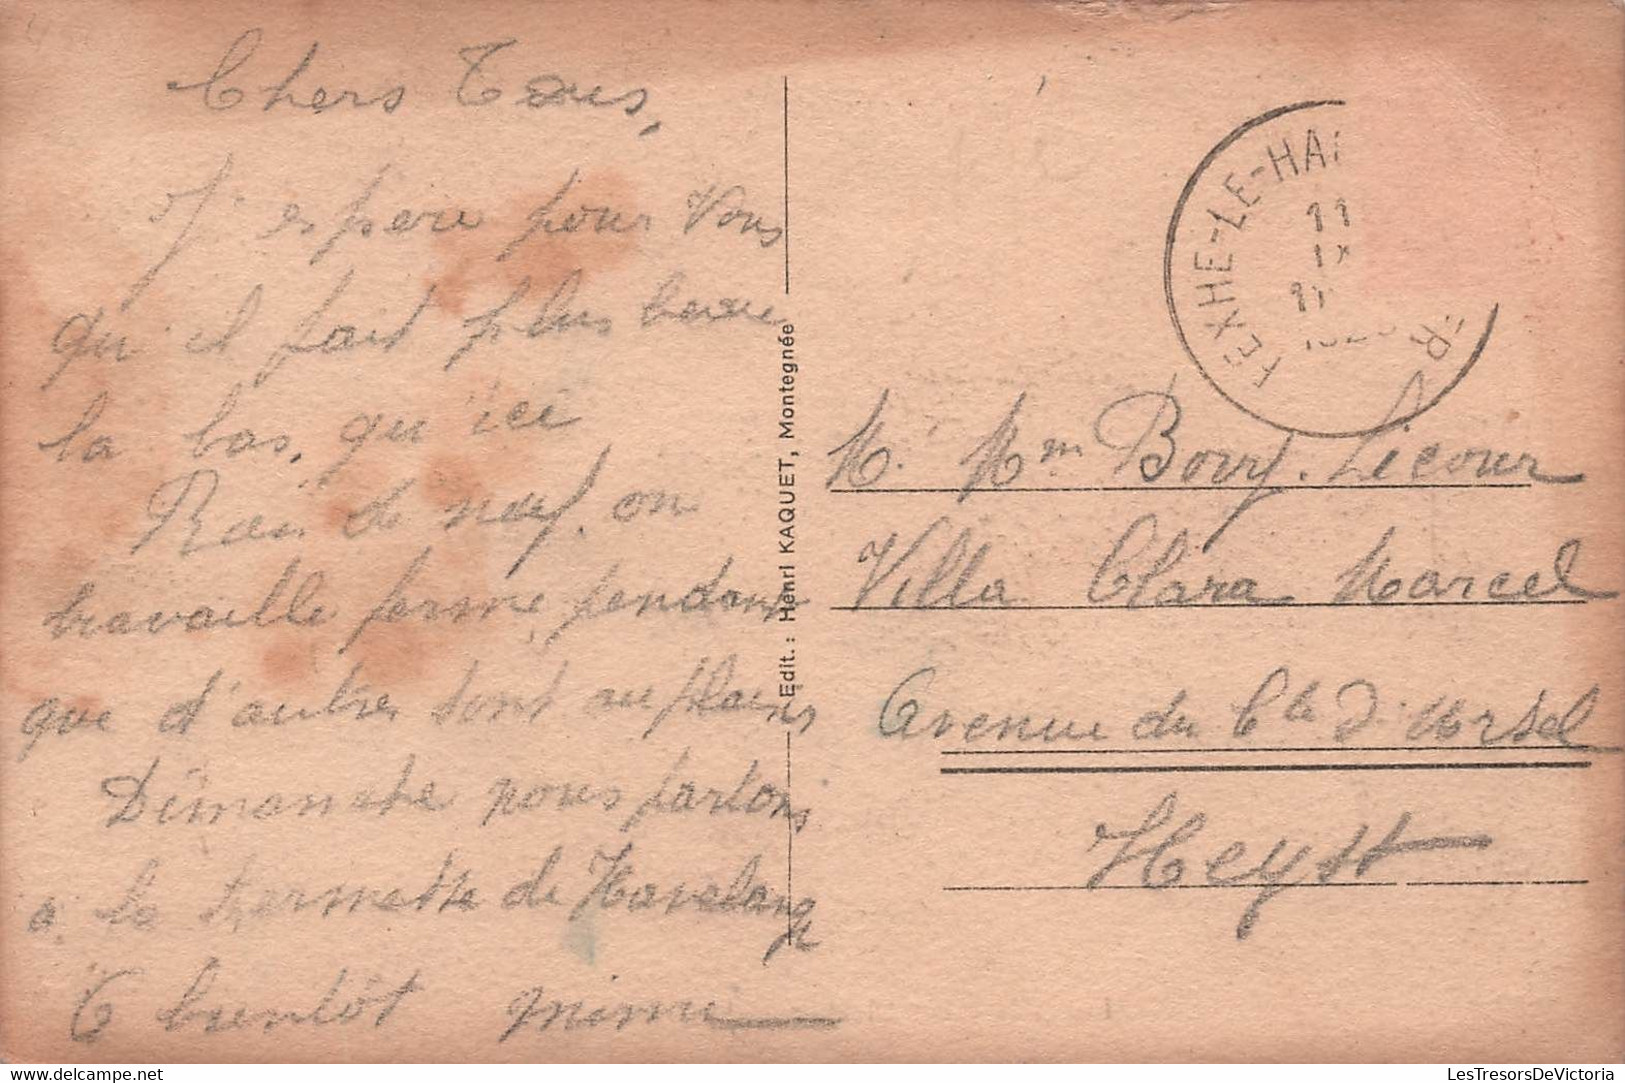 Chers Tous,
J'espere pour Vous
qu'il fait plus beau
la bas, qu'ici
Rien de neuf. on
travaille ferme pendant
que d'autres sont au plaisirs
Dimanche nous partons
a la fermette de Havelange
A bientôt Mimi
Edit. : Henri KAQUET, Montegnée
FEXHE-LE-HA
ER
11
IX
M. Mm Boury. Licour
Villa Clara Marcel
Avenue du Cte D'Ursel
Heyst
LesTresorsDeVictoria